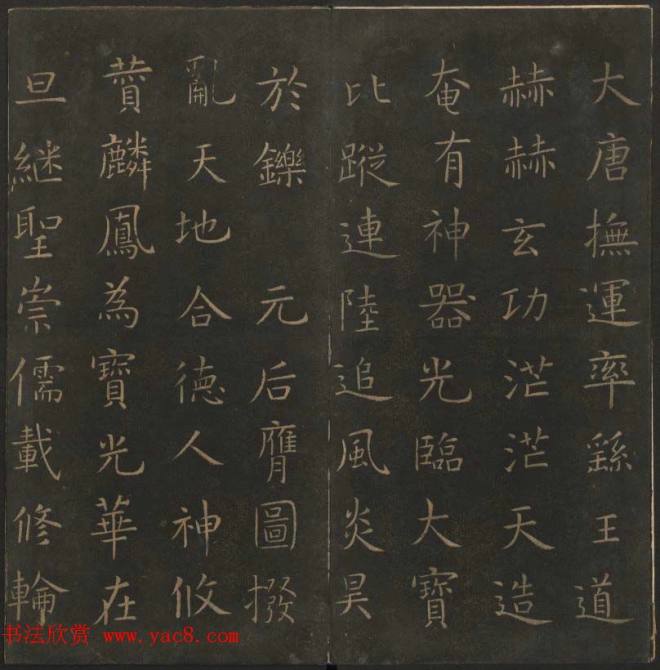 大唐撫運率繇王道
赫赫玄功茫茫天造
奄有神器光臨大寶
比蹤連陸追風炎昊
於鑠 元后膺圖撥
亂天地合徳人神攸
贊麟鳳為寶光華在
旦継聖崇儒載修輪
书法欣赏 www.yac8.com